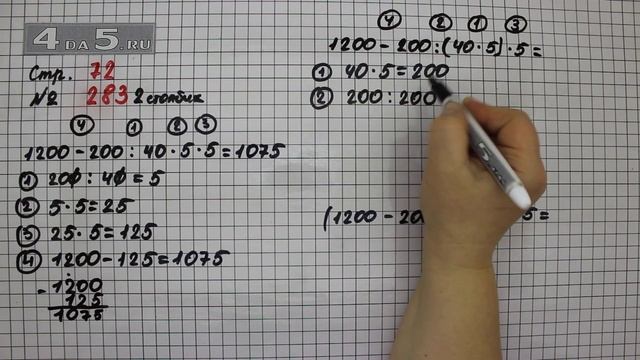 4DA5.RU
Стр. 72
№ 283 2 столбик
④ ① ② ③
1200 - 200 : 40 · 5 · 5 = 1075
① 200 : 40 = 5
② 5 · 5 = 25
③ 25 · 5 = 125
④ 1200 - 125 = 1075
- 1200
125
1075
④ ② ① ③
1200 - 200 : (40 · 5) · 5 =
① 40 · 5 = 200
② 200 : 200
(1200 - 20 5 =